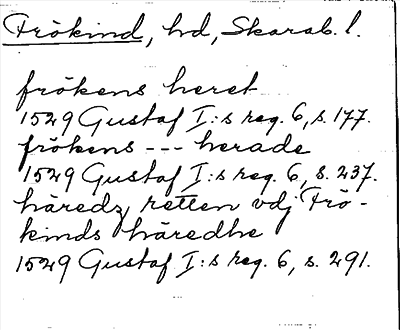 Frökind, hd, Skarab. l.
frökens heret
1529 Gustaf I:s reg. 6, s. 177.
frökens --- herade
1529 Gustaf I:s reg. 6, s. 237.
häredz retten vdj Frö-
kinds häredhe
1529 Gustaf I:s reg. 6, s. 291.